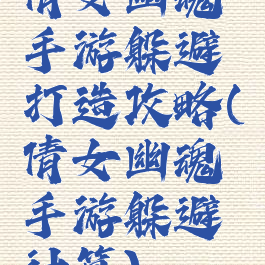 倩女幽魂
手游躲避
打造攻略(
倩女幽魂
手游躲避
计算)